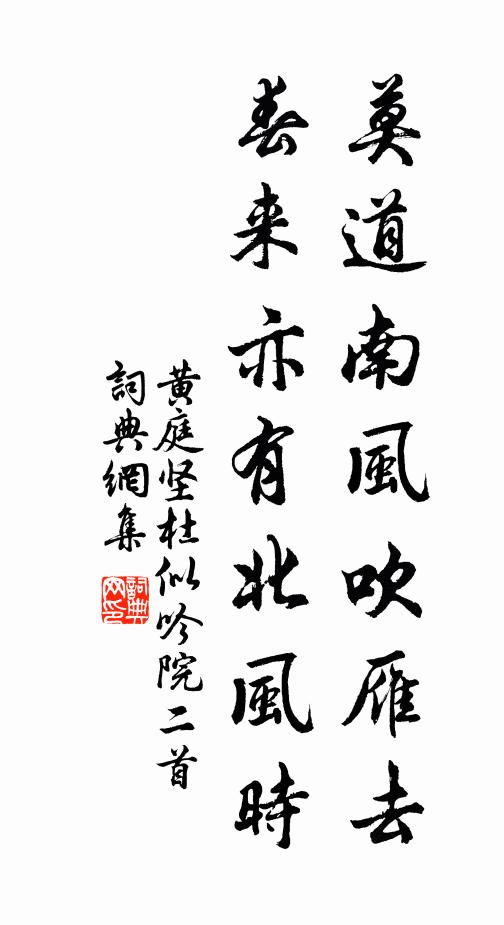 莫道南風吹雁去
春来亦有北風時
黄庭坚杜似吟院二首
詞典網集
詞典
网印